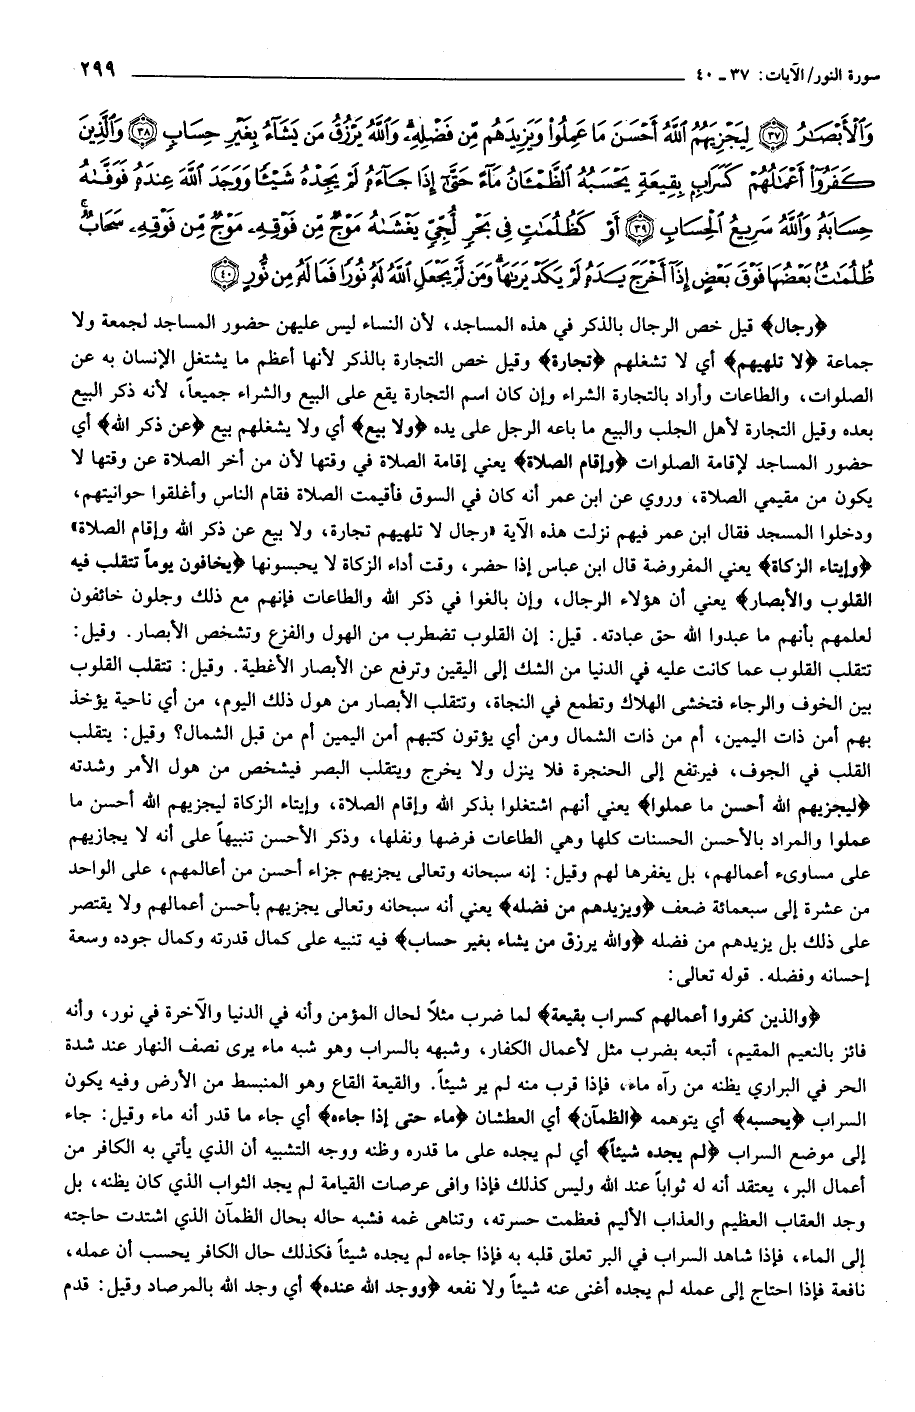 سورة النور/الآيات: ٣٧ ـ ٤٠ ٢٩٩
وَالْأَبْصَارُ ﴿٣٧﴾ لِيَجْزِيَهُمُ اللَّهُ أَحْسَنَ مَا عَمِلُوا وَيَزِيدَهُم مِّن فَضْلِهِ وَاللَّهُ يَرْزُقُ مَن يَشَاءُ بِغَيْرِ حِسَابٍ ﴿٣٨﴾ وَالَّذِينَ
كَفَرُوا أَعْمَالُهُمْ كَسَرَابٍ بِقِيعَةٍ يَحْسَبُهُ الظَّمْآنُ مَاءً حَتَّى إِذَا جَاءَهُ لَمْ يَجِدْهُ شَيْئًا وَوَجَدَ اللَّهَ عِندَهُ فَوَفَّاهُ
حِسَابَهُ وَاللَّهُ سَرِيعُ الْحِسَابِ ﴿٣٩﴾ أَوْ كَظُلُمَاتٍ فِي بَحْرٍ لُّجِّيٍّ يَغْشَاهُ مَوْجٌ مِّن فَوْقِهِ مَوْجٌ مِّن فَوْقِهِ سَحَابٌ
ظُلُمَاتٌ بَعْضُهَا فَوْقَ بَعْضٍ إِذَا أَخْرَجَ يَدَهُ لَمْ يَكَدْ يَرَاهَا وَمَن لَّمْ يَجْعَلِ اللَّهُ لَهُ نُورًا فَمَا لَهُ مِن نُّورٍ ﴿٤٠﴾
﴿رجال﴾ قيل خص الرجال بالذكر في هذه المساجد، لأن النساء ليس عليهن حضور المساجد لجمعة ولا
جماعة ﴿لا تلهيهم﴾ أي لا تشغلهم ﴿تجارة﴾ وقيل خص التجارة بالذكر لأنها أعظم ما يشتغل الإنسان به عن
الصلوات، والطاعات وأراد بالتجارة الشراء وإن كان اسم التجارة يقع على البيع والشراء جميعاً، لأنه ذكر البيع
بعده وقيل التجارة لأهل الجلب والبيع ما باعه الرجل على يده ﴿ولا بيع﴾ أي ولا يشغلهم بيع ﴿عن ذكر الله﴾ أي
حضور المساجد لإقامة الصلوات ﴿وإقام الصلاة﴾ يعني إقامة الصلاة في وقتها لأن من أخر الصلاة عن وقتها لا
يكون من مقيمي الصلاة، وروي عن ابن عمر أنه كان في السوق فأقيمت الصلاة فقام الناس وأغلقوا حوانيتهم،
ودخلوا المسجد فقال ابن عمر فيهم نزلت هذه الآية «رجال لا تلهيهم تجارة، ولا بيع عن ذكر الله وإقام الصلاة»
﴿وإيتاء الزكاة﴾ يعني المفروضة قال ابن عباس إذا حضر، وقت أداء الزكاة لا يحبسونها ﴿يخافون يوماً تتقلب فيه
القلوب والأبصار﴾ يعني أن هؤلاء الرجال، وإن بالغوا في ذكر الله والطاعات فإنهم مع ذلك وجلون خائفون
لعلمهم بأنهم ما عبدوا الله حق عبادته. قيل: إن القلوب تضطرب من الهول والفزع وتشخص الأبصار. وقيل:
تتقلب القلوب عما كانت عليه في الدنيا من الشك إلى اليقين وترفع عن الأبصار الأغطية. وقيل: تتقلب القلوب
بين الخوف والرجاء فتخشى الهلاك وتطمع في النجاة، وتتقلب الأبصار من هول ذلك اليوم، من أي ناحية يؤخذ
بهم أمن ذات اليمين، أم من ذات الشمال ومن أي يؤتون كتبهم أمن اليمين أم من قبل الشمال؟ وقيل: يتقلب
القلب في الجوف، فيرتفع إلى الحنجرة فلا ينزل ولا يخرج ويتقلب البصر فيشخص من هول الأمر وشدته
﴿ليجزيهم الله أحسن ما عملوا﴾ يعني أنهم اشتغلوا بذكر الله وإقام الصلاة، وإيتاء الزكاة ليجزيهم الله أحسن ما
عملوا والمراد بالأحسن الحسنات كلها وهي الطاعات فرضها ونفلها، وذكر الأحسن تنبيهاً على أنه لا يجازيهم
على مساوىء أعمالهم، بل يغفرها لهم وقيل: إنه سبحانه وتعالى يجزيهم جزاء أحسن من أعالمهم، على الواحد
من عشرة إلى سبعمائة ضعف ﴿ويزيدهم من فضله﴾ يعني أنه سبحانه وتعالى يجزيهم بأحسن أعمالهم ولا يقتصر
على ذلك بل يزيدهم من فضله ﴿والله يرزق من يشاء بغير حساب﴾ فيه تنبيه على كمال قدرته وكمال جوده وسعة
إحسانه وفضله. قوله تعالى:
﴿والذين كفروا أعمالهم كسراب بقيعة﴾ لما ضرب مثلاً لحال المؤمن وأنه في الدنيا والآخرة في نور، وأنه
فائز بالنعيم المقيم، أتبعه بضرب مثل لأعمال الكفار، وشبهه بالسراب وهو شبه ماء يرى نصف النهار عند شدة
الحر في البراري يظنه من رآه ماء، فإذا قرب منه لم ير شيئاً. والقيعة القاع وهو المنبسط من الأرض وفيه يكون
السراب ﴿يحسبه﴾ أي يتوهمه ﴿الظمآن﴾ أي العطشان ﴿ماء حتى إذا جاءه﴾ أي جاء ما قدر أنه ماء وقيل: جاء
إلى موضع السراب ﴿لم يجده شيئاً﴾ أي لم يجده على ما قدره وظنه ووجه التشبيه أن الذي يأتي به الكافر من
أعمال البر، يعتقد أنه له ثواباً عند الله وليس كذلك فإذا وافى عرصات القيامة لم يجد الثواب الذي كان يظنه، بل
وجد العقاب العظيم والعذاب الأليم فعظمت حسرته، وتناهى غمه فشبه حاله بحال الظمآن الذي اشتدت حاجته
إلى الماء، فإذا شاهد السراب في البر تعلق قلبه به فإذا جاءه لم يجده شيئاً فكذلك حال الكافر يحسب أن عمله،
نافعة فإذا احتاج إلى عمله لم يجده أغنى عنه شيئاً ولا نفعه ﴿ووجد الله عنده﴾ أي وجد الله بالمرصاد وقيل: قدم